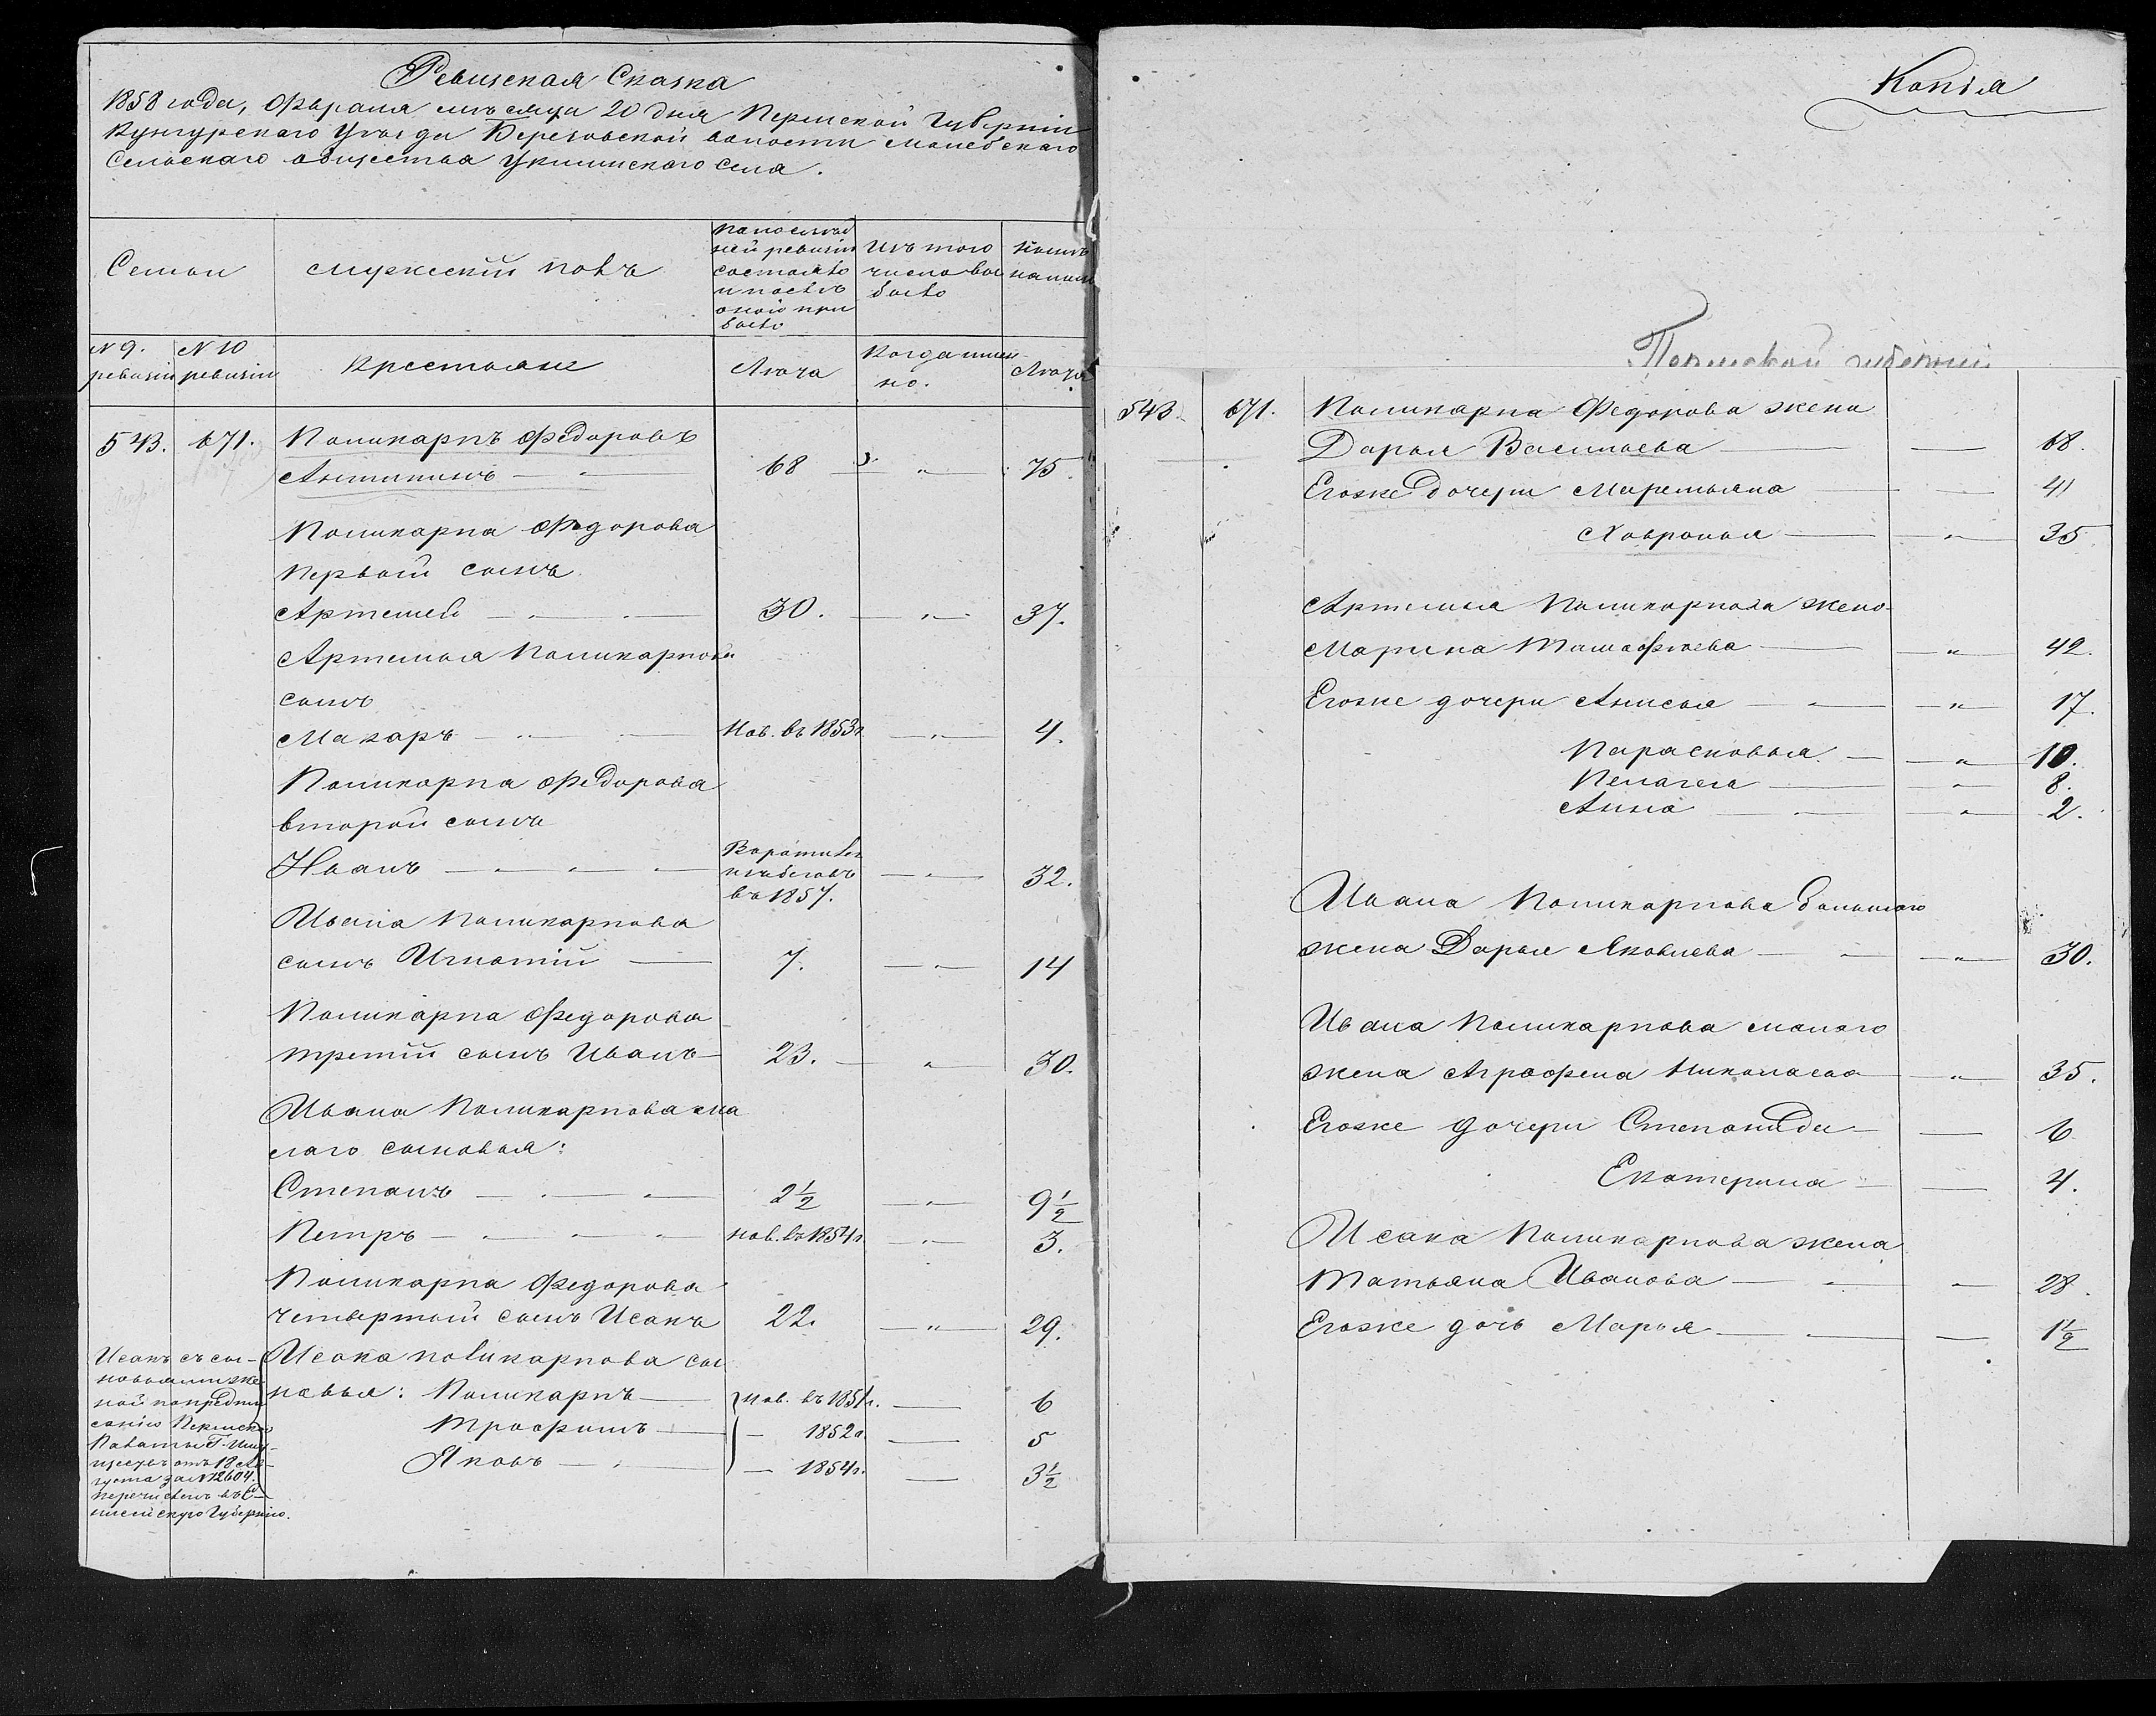 Ревизская Сказка
1858 года, Февраля мѣсяца 20 дня Пермской Губерніи
Кунгурскаго Уѣзда Березовской волости
Сельскаго общества села.
Семьи
мужескій полъ
По послѣд
ней ревизіи
состояло
и послѣ
оной при
было
Изъ того
числа вы
было
Нынѣ
на лицо
N 9. ревизіи
N 10 ревизіи
Крестьяне
Лѣта
Когда имен-
но.
Лѣта
543. 671. Поликарпъ Федоровъ
Антипинъ — 68 — " — 75.
Поликарпа Федорова
первый сынъ
Артемей — 30. — " — 37.
Артемья Поликарпова
сынъ
Макаръ — Нов. въ 1853г. — " — 4.
Поликарпа Федорова
второй сынъ
Иванъ — Воротился
изъ бѣговъ
въ 1857. — " — 32.
Ивана Поликарпова
сынъ Игнатій — 7. — " — 14
Поликарпа Федорова
третій сынъ Иванъ — 23. — " — 30.
Ивана Поликарпова ма
лаго сыновья:
Степанъ — 2½ — " — 9½
Петръ — нов. въ 1854г. — " — 3.
Поликарпа Федорова
четвертый сынъ Исакъ 22. — " — 29.
Исака Поликарпова сы
новья: Поликарпъ — нов. въ 1851г. — 6
Трофимъ — 1852г. — 5
Яковъ — 1854г. — 3½
Исакъ съ сы-
новьями и же-
ной по предпи
санію Пермской
Палаты Г. Иму-
ществъ отъ 18 Ав-
густа за N 12604.
перечисленъ въ Е-
нисейскую Губернію.
Копія
Пермской губерніи
543. 671. Поликарпа Федорова жена
Дарья Васильева — 68.
Егоже дочери Маремьяна — 41
Ховронья — " — 35
Артемья Поликарпова жена
Марина — " — 42.
Егоже дочери Анисья — " — 17.
Парасковья — " — 10.
Пелагея — " — 8.
Анна — " — 2.
Ивана Поликарпова большаго
жена Дарья Яковлева — " — 30.
Ивана Поликарпова малаго
жена Аграфена Николаева — " — 35.
Егоже дочери Степанида — 6
Екатерина — 4.
Исака Поликарпова жена
Татьяна Иванова — 28.
Егоже дочь Марья — 1½